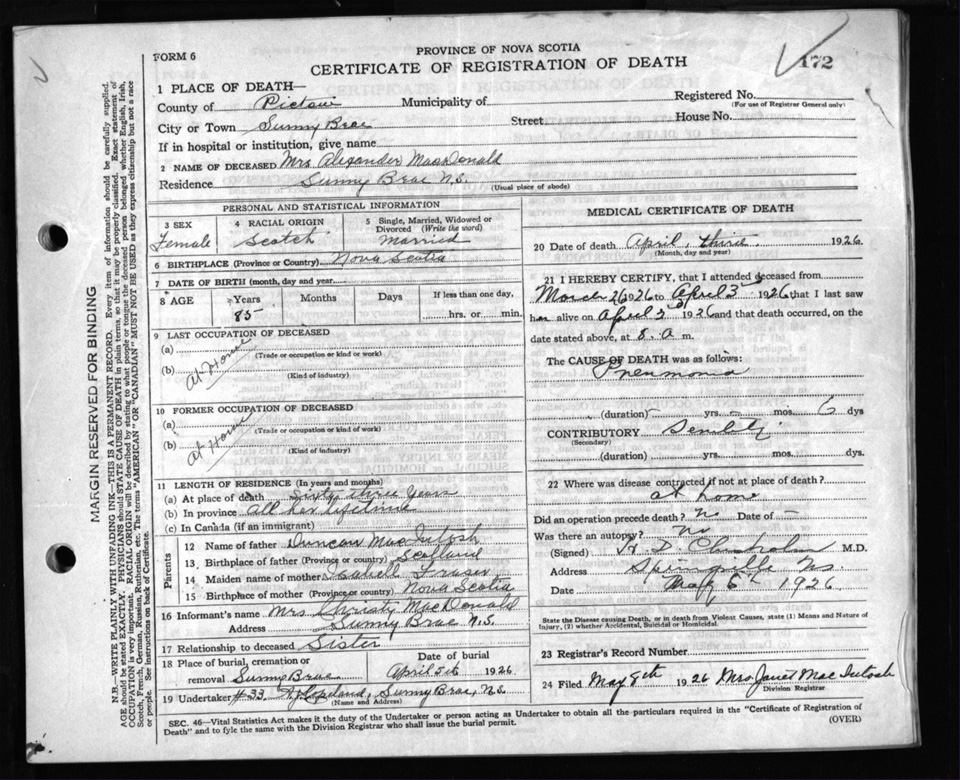 FORM 6
PROVINCE OF NOVA SCOTIA
CERTIFICATE OF REGISTRATION OF DEATH
172
1 PLACE OF DEATH—
County of Pictou Municipality of
Registered No.
(For use of Registrar General only)
City or Town Sunny Brae Street House No.
If in hospital or institution, give name
2 NAME OF DECEASED Mrs. Alexander MacDonald
Residence Sunny Brae N.S. (Usual place of abode)
PERSONAL AND STATISTICAL INFORMATION
3 SEX Female
4 RACIAL ORIGIN Scotch
5 Single, Married, Widowed or Divorced (Write the word) Married
6 BIRTHPLACE (Province or Country) Nova Scotia
7 DATE OF BIRTH (month, day and year)
8 AGE Years Months Days If less than one day,
85 hrs. or min.
9 LAST OCCUPATION OF DECEASED
(a) At Home
(Trade or occupation or kind of work)
(b)
(Kind of industry)
10 FORMER OCCUPATION OF DECEASED
(a) At Home
(Trade or occupation or kind of work)
(b)
(Kind of industry)
11 LENGTH OF RESIDENCE (In years and months)
(a) At place of death Sixty three years
(b) In province All her lifetime
(c) In Canada (if an immigrant)
Parents
12 Name of father Duncan MacIntosh
13 Birthplace of father (Province or country) Scotland
14 Maiden name of mother Isabell Fraser
15 Birthplace of mother (Province or country) Nova Scotia
16 Informant's name Mrs Christy MacDonald
Address Sunny Brae N.S.
17 Relationship to deceased Sister
18 Place of burial, cremation or removal Sunny Brae
Date of burial April 5th 1926
19 Undertaker #33 Copeland, Sunny Brae, N.S.
(Name and Address)
MEDICAL CERTIFICATE OF DEATH
20 Date of death April, third. 1926
(Month, day and year)
21 I HEREBY CERTIFY, that I attended deceased from
March 26 1926 to April 3 1926 that I last saw
alive on April 2 1926 and that death occurred, on the
date stated above, at 8. a. m.
The CAUSE OF DEATH was as follows:
Pneumonia
(duration) – yrs. – mos. 6 dys
CONTRIBUTORY Senility
(Secondary)
(duration) yrs. mos. dys.
22 Where was disease contracted if not at place of death?
at home
Did an operation precede death? No Date of –
Was there an autopsy? No
(Signed) Chisholm M.D.
Address Springville N.S.
Date May 6th 1926
State the Disease causing Death, or in death from Violent Causes, state (1) Means and Nature of Injury, (2) whether Accidental, Suicidal or Homicidal.
23 Registrar's Record Number
24 Filed May 8th 1926 Mrs Janet MacIntosh
Division Registrar
SEC. 46—Vital Statistics Act makes it the duty of the Undertaker or person acting as Undertaker to obtain all the particulars required in the "Certificate of Registration of
Death" and to fyle the same with the Division Registrar who shall issue the burial permit.
(OVER)
MARGIN RESERVED FOR BINDING
N.B.—WRITE PLAINLY WITH UNFADING INK—THIS IS A PERMANENT RECORD. Every item of information should be carefully supplied.
AGE should be stated EXACTLY. PHYSICIANS should STATE CAUSE OF DEATH in plain terms, so that it may be properly classified. Exact statement of
OCCUPATION is very important. RACIAL ORIGIN will be described by stating to what people or tongue the deceased person belonged whether English, Irish,
Scotch, French, German, Russian, Ruthenian, etc. The terms "AMERICAN" OR "CANADIAN" MUST NOT BE USED as they express citizenship but not a race
or people. See instructions on back of Certificate.